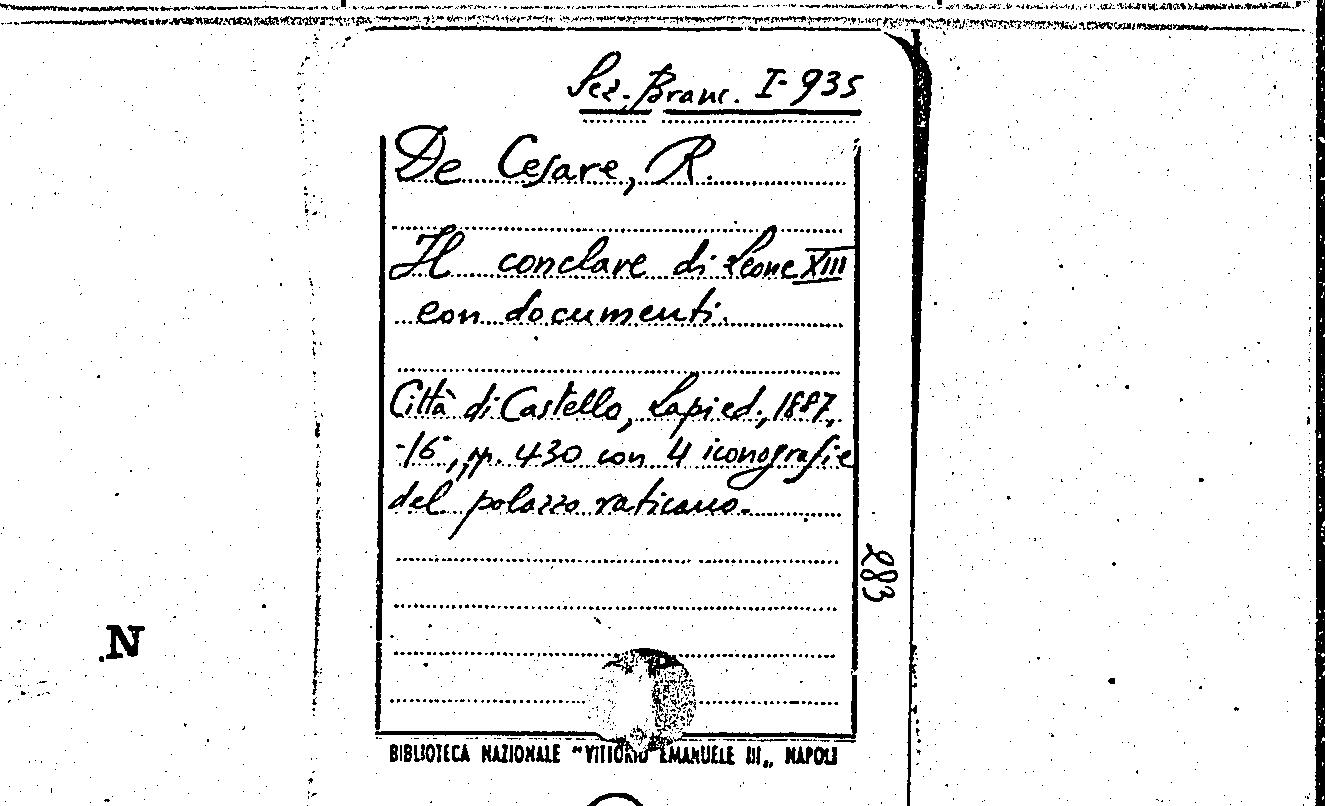 Sez. Branc. I-935
De Cesare, R.
Il conclave di Leone XIII
con documenti.
Città di Castello, Lapi ed., 1887,
-16°, pp. 430 con 4 iconografie
del palazzo vaticano.
283
N
BIBLIOTECA NAZIONALE "VITTORIO EMANUELE III„ NAPOLI